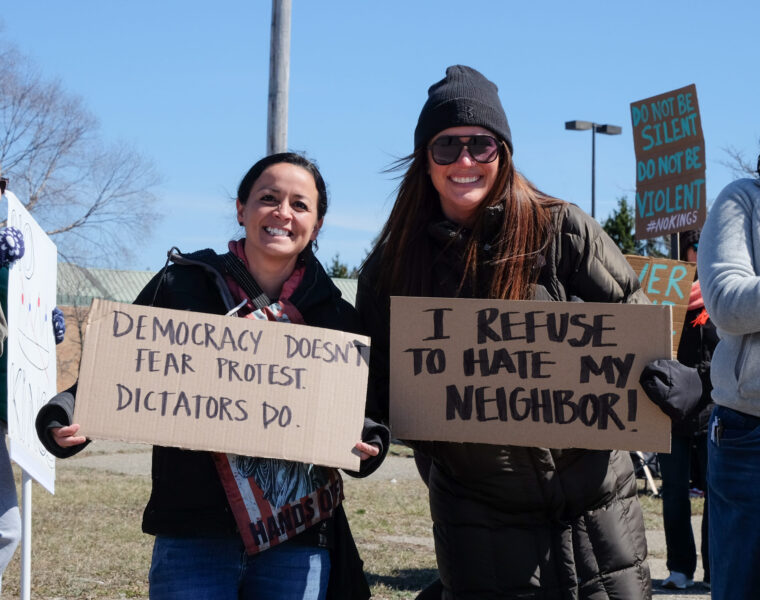 DEMOCRACY DOESN'T
FEAR PROTEST.
DICTATORS DO.
I REFUSE
TO HATE MY
NEIGHBOR!
DO NOT BE
SILENT
DO NOT BE
VIOLENT
#NOKINGS
HANDS